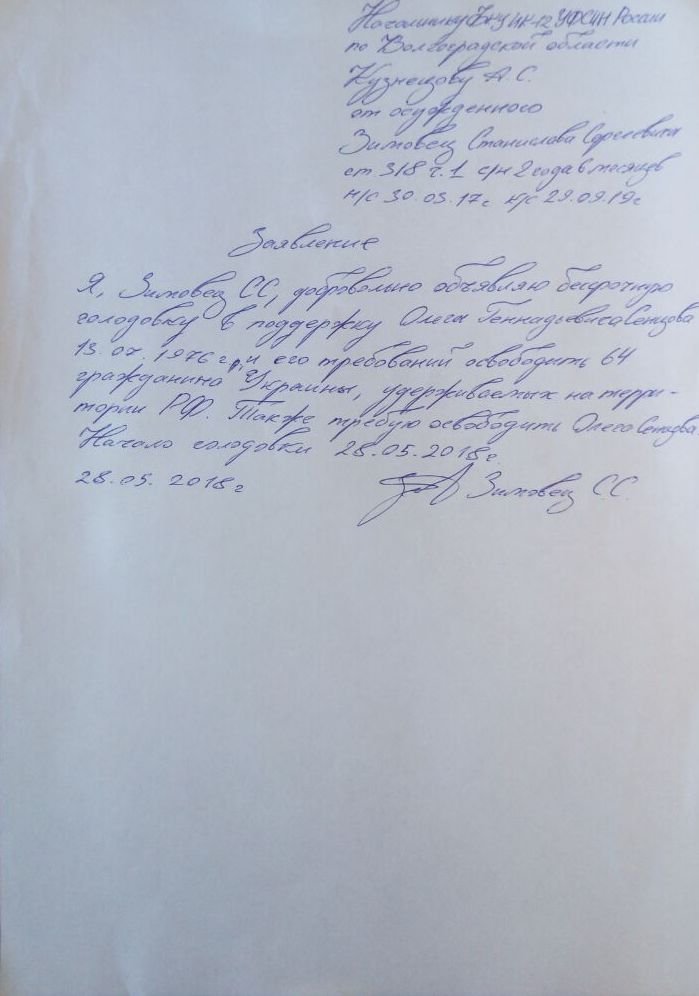 Начальнику ФКУ ИК-12 УФСИН России
по Волгоградской области
Кузнецову А.С.
от осужденного
Зимовец Станислава Сергеевича
ст 318 ч.1 с/н 2 года 6 месяцев
н/с 30.03.17г к/с 29.09.19г
Заявление
Я, Зимовец СС, добровольно объявляю бессрочную
голодовку в поддержку Олега Геннадьевича Сенцова
13.07.1976 г.р, и его требований освободить 64
гражданина Украины, удерживаемых на терри-
тории РФ. Также требую освободить Олега Сенцова
Начало голодовки 28.05.2018г.
28.05.2018г Зимовец С.С.